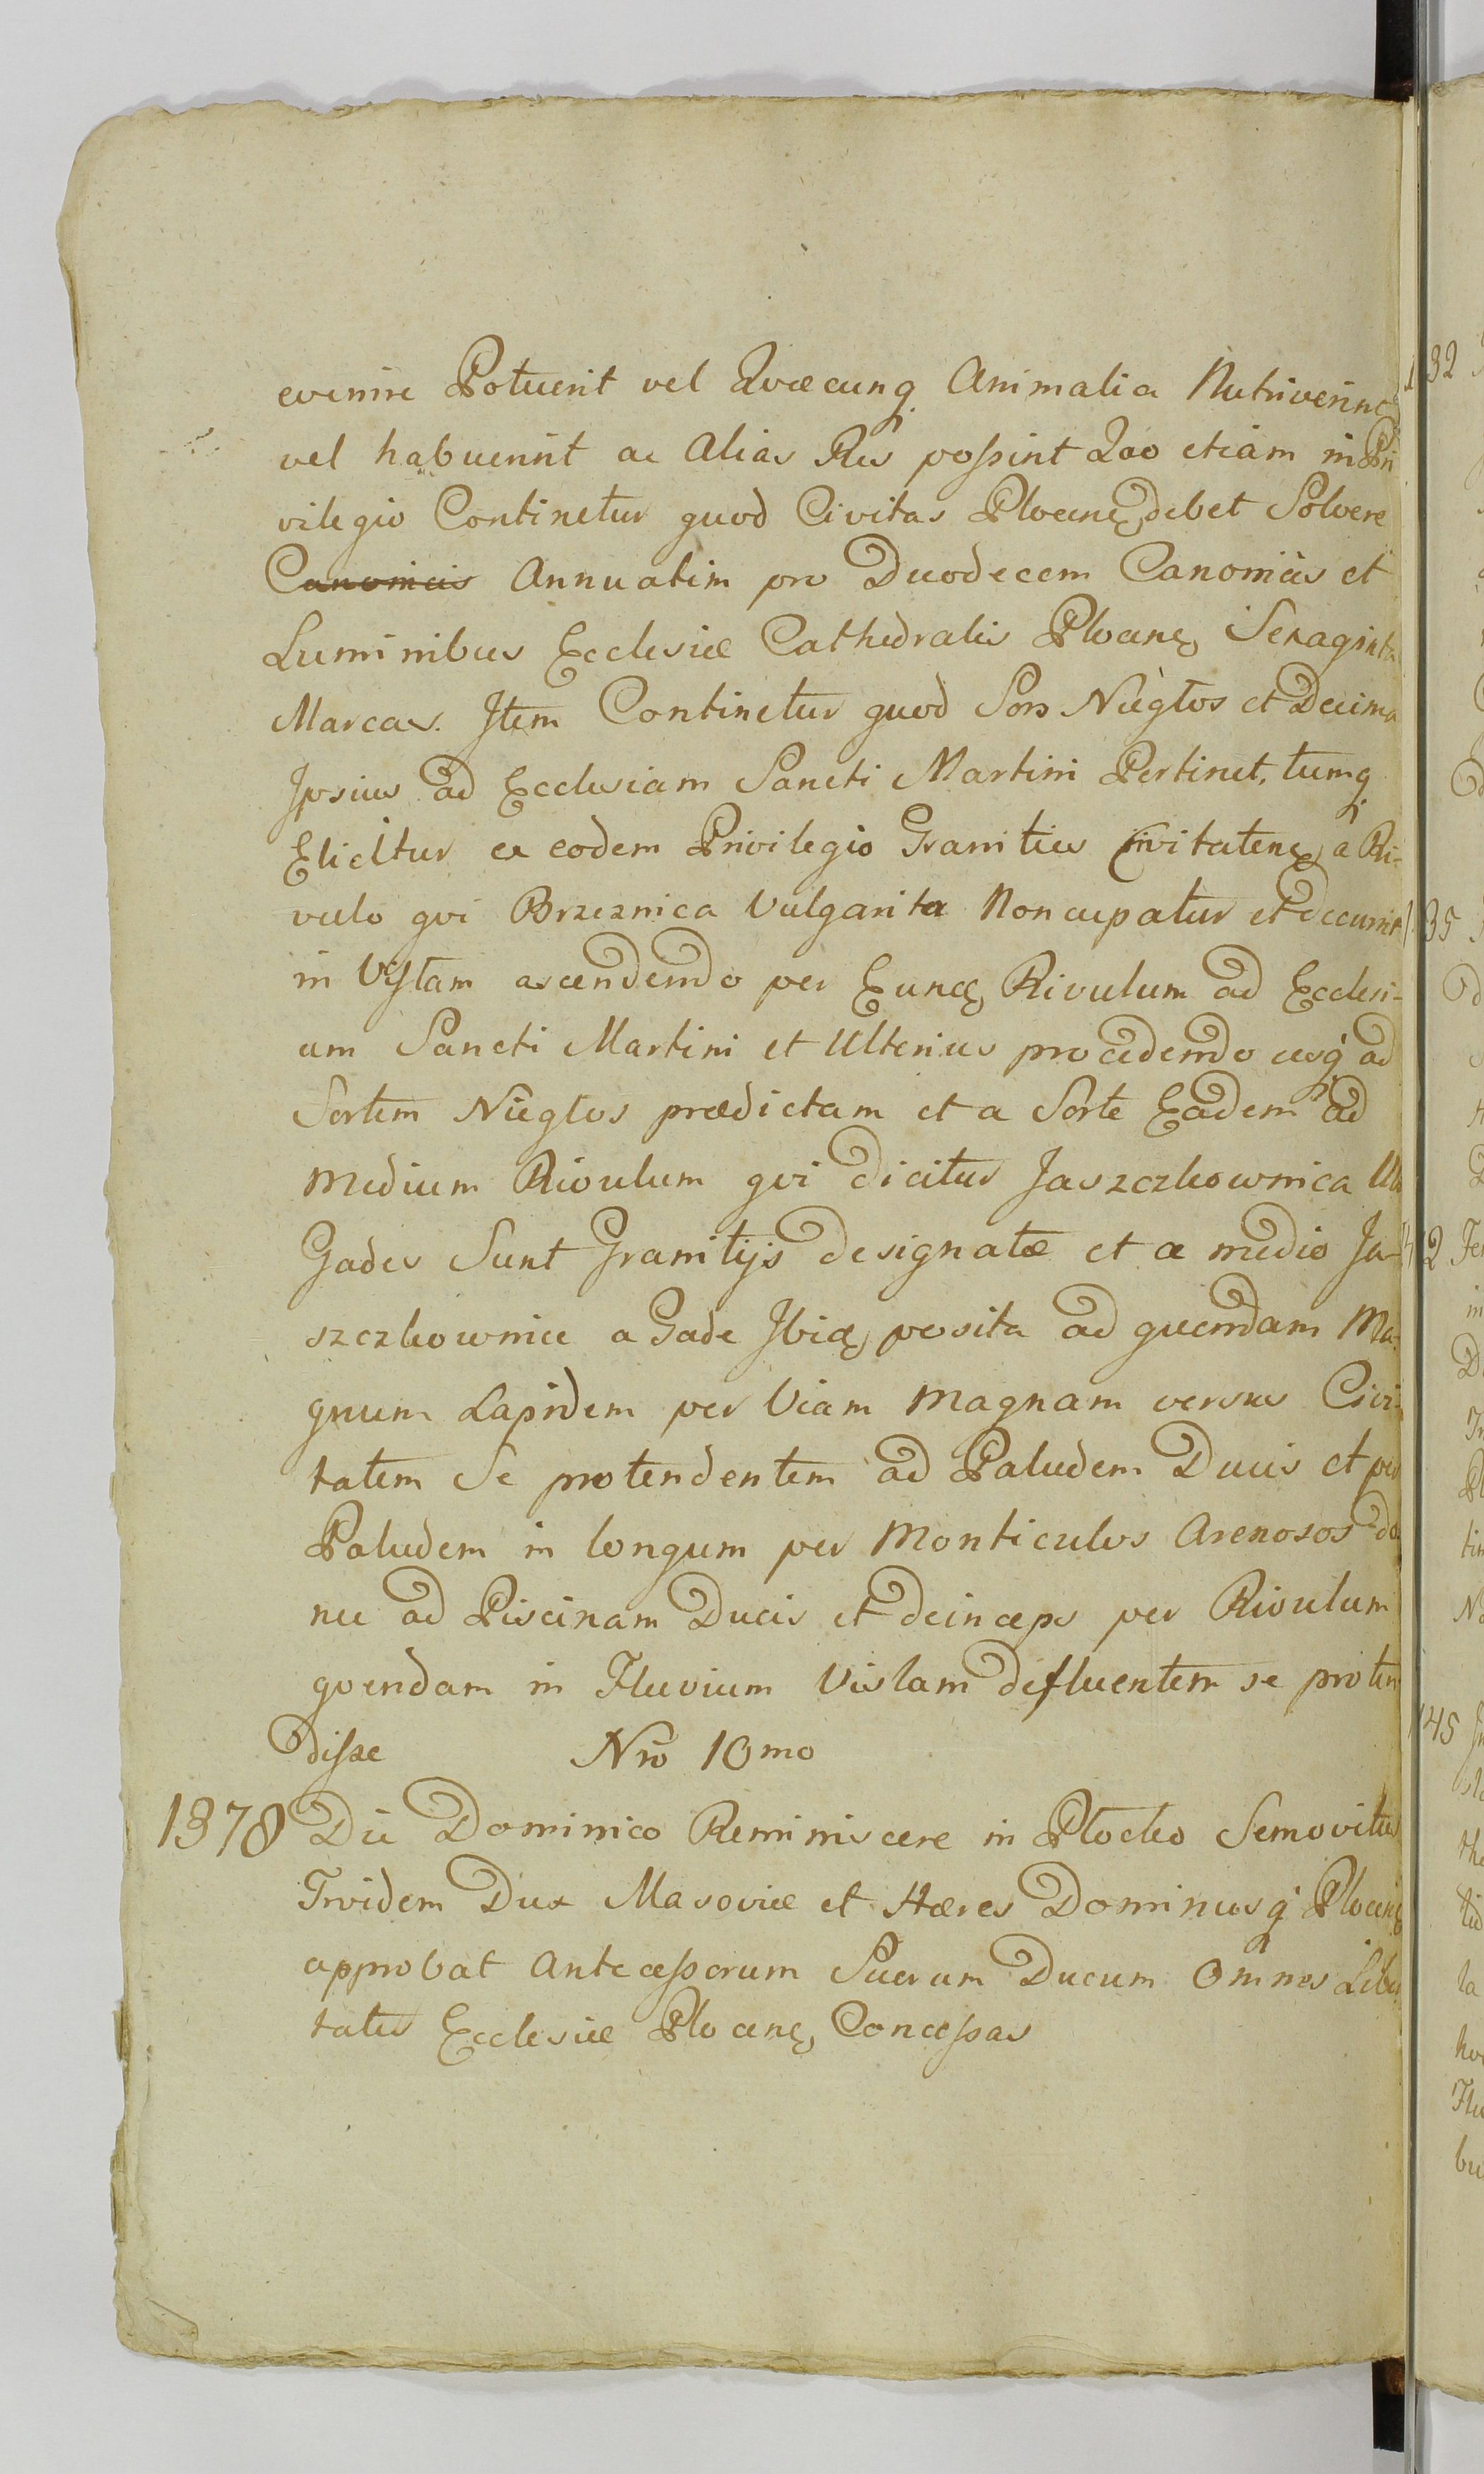 evenire Potuerit vel Qvæcunq Animalia Nutriverint
vel habuerint ac Alias Res poſsint Qvo etiam in Pri
vilegio Continetur quod Civitas Plocenę debet Solvere
Canonicis Annuatim pro Duodecem Canonicis et
Luminibus Ecclesiæ Cathedralis Plocenę Sexaginta
Marcas. Item Continetur quod Sors Niegłos et Decima
Ipsius ad Ecclesiam Sancti Martini Pertinet, tumq
Elicitur ex eodem Privilegio Granities Civitatenę a Ri-
vulo qvi Brzeznica Vulgarita Noncupatur et decurrit
in Vistam ascendendo per Eunđ Rivulum ad Ecclesi-
am Sancti Martini et Ulterius procedendo usq ad
Sortem Niegłos prædictam et a Sorte Eadem ad
Medium Rivulum qvi dicitur Jaszczkownica Ubi
Gades Sunt Granitijs designatæ et a medio Ja-
szczkownice a Gade Ibid posita ad quemdam Ma-
gnum Lapidem per Viam Magnam versus Civi-
tatem Se protendentem ad Paludem Ducis et per
Paludem in longum per Monticulos Arenosos do
nec ad Piscinam Ducis et deinceps per Rivulum
qvendam in Fluvium Vislam defluentem se proten
diſse Nro 10mo
1378 Die Dominico Reminiscere in Plocko Semovitus
Tridem Dux Masoviæ et Hæres Dominusq Plocenę
approbat Anteceſsorum Suorum Ducum Omnes Liber
tates Ecclesiæ Plocenę Conceſsas